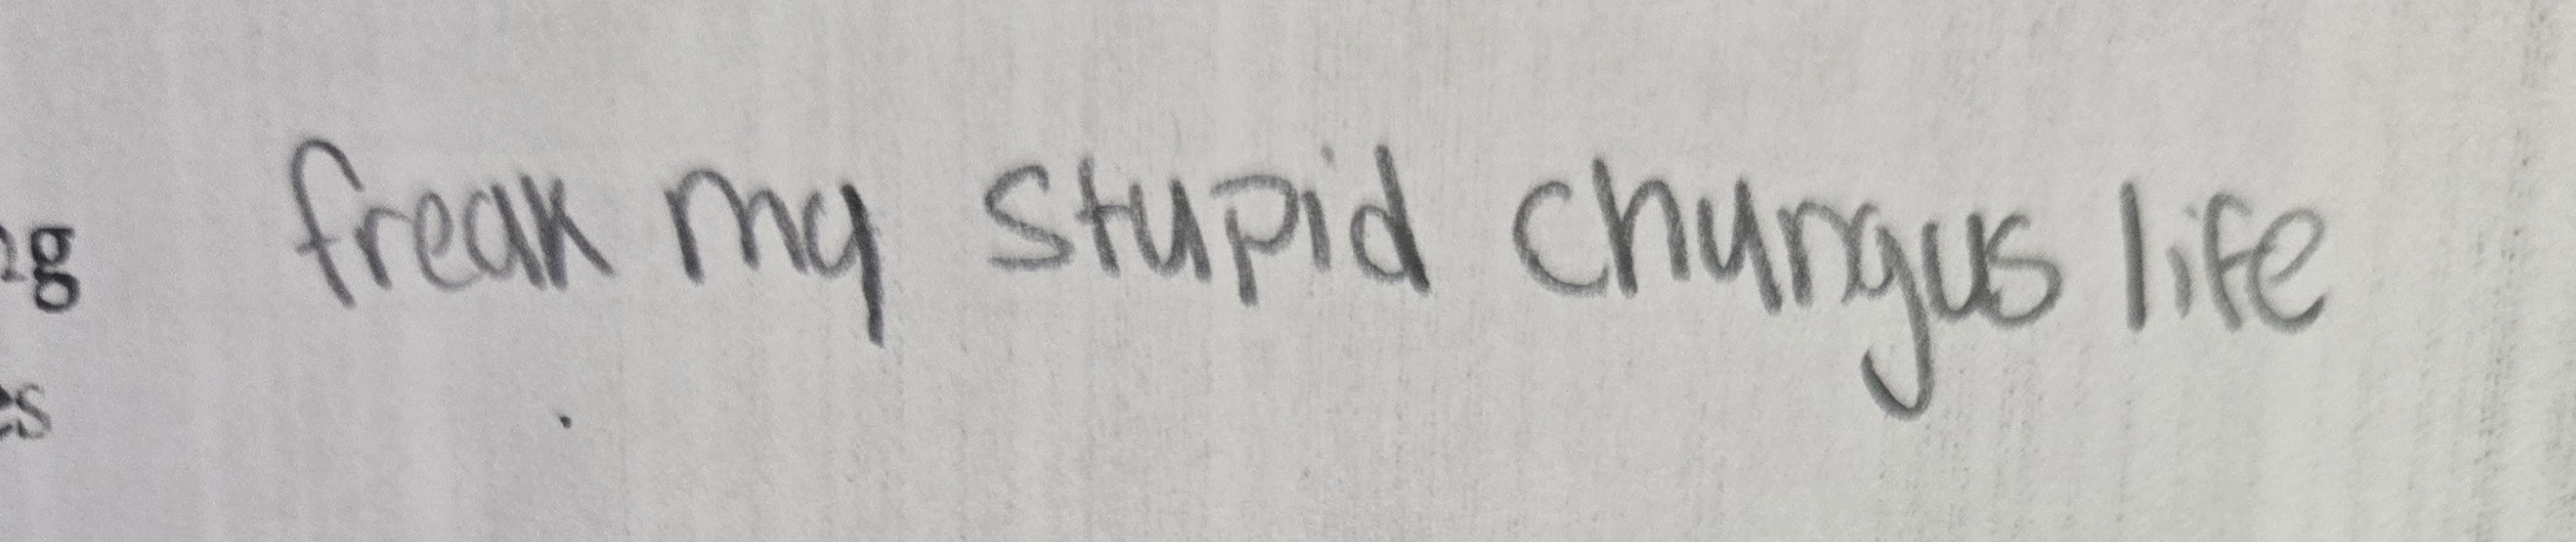 freak my stupid chungus life